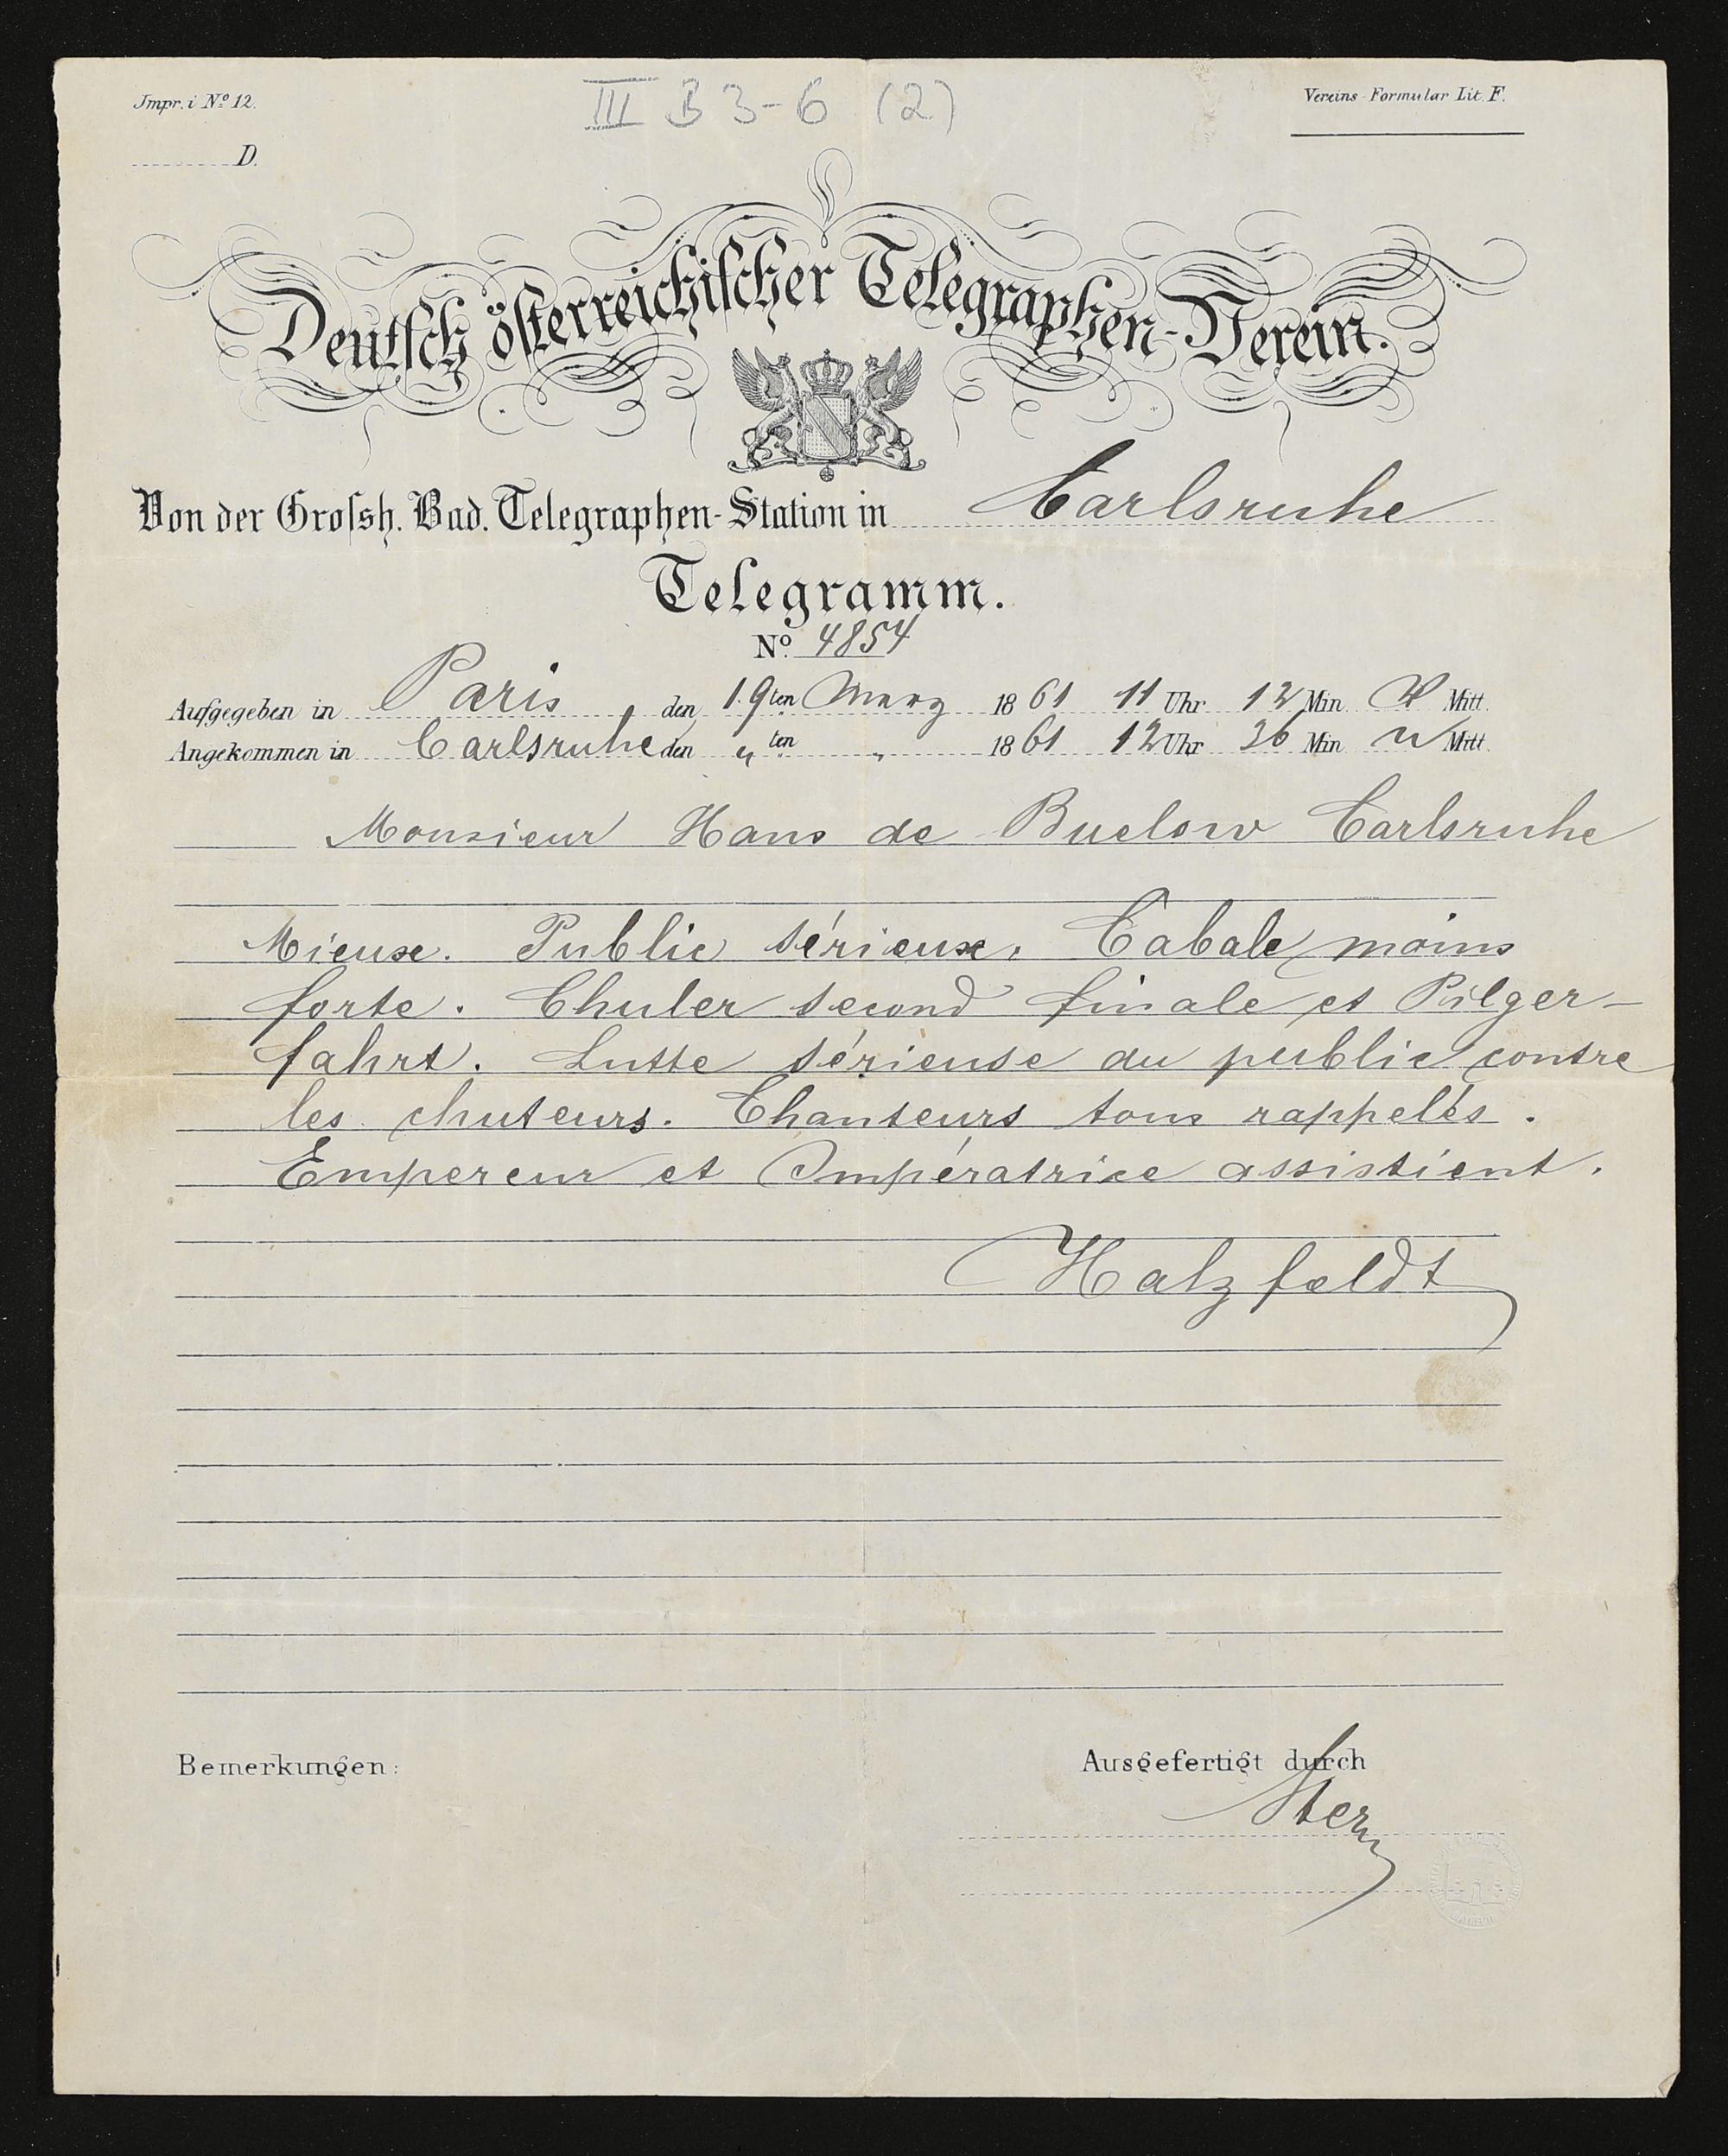 Impr. i No 12.
III B 3-6 (2)
Vereins-Formular Lit. F.
D.
Deutsch österreichischer Telegraphen-Verein.
Von der Grossh. Bad. Telegraphen-Station in Carlsruhe
Telegramm.
No. 4854
Aufgegeben in Paris, den 19ten März 1861 11 Uhr 12 Min. V Mitt.
Angekommen in Carlsruhe den "ten " 1861 12 Uhr 36 Min. N Mitt.
Monsieur Hans de Buelow Carlsruhe
Mieux. Public sérieux. Cabale moins
forte. Chuler second finale et Pilger-
fahrt. Lutte sérieuse du public contre
les chuteurs. Chanteurs tous rappelés.
Empereur et Impératrice assistient.
Hatzfeldt
Bemerkungen:
Ausgefertigt durch
Stern